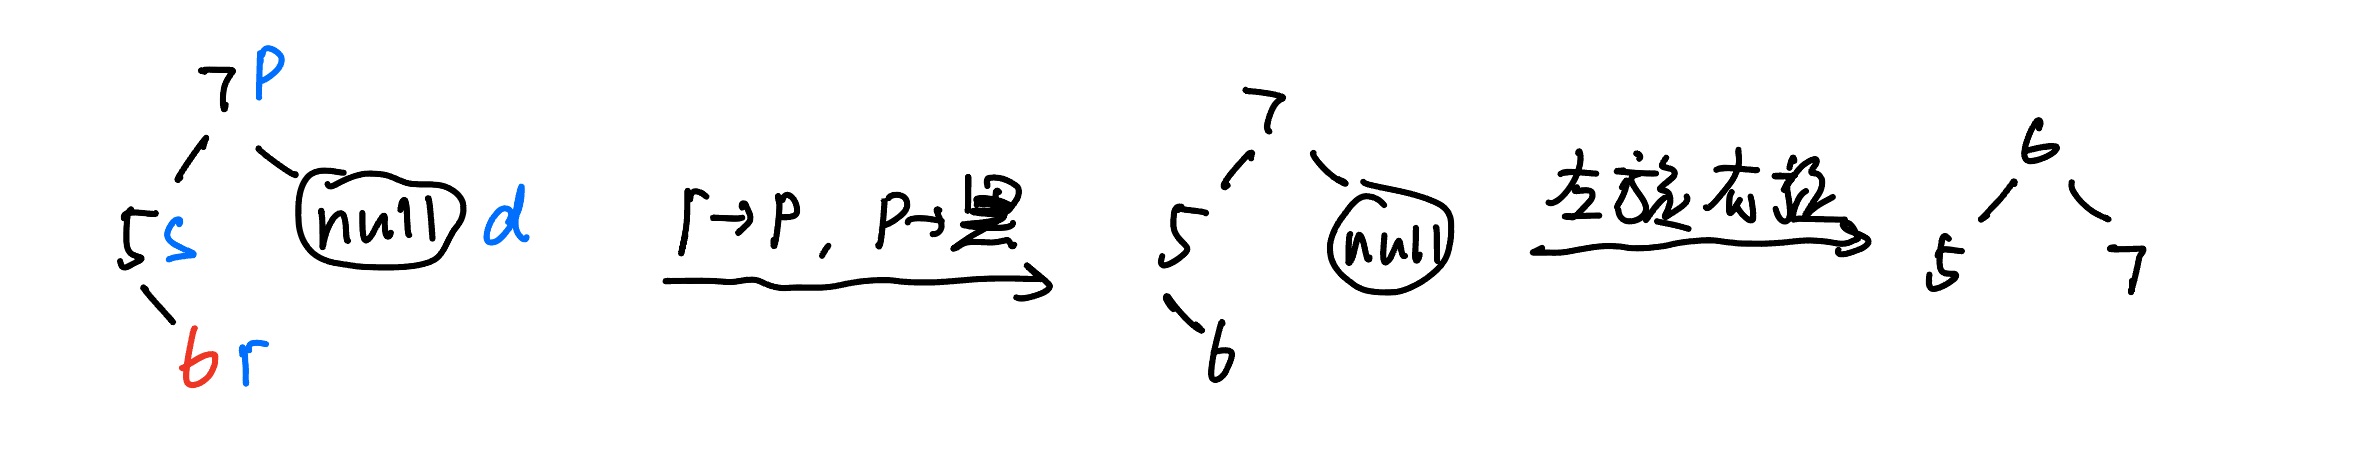 7 P
5 s null d
6 r
r→P, P→黑
7
5 null
6
左旋右旋
6
5 7